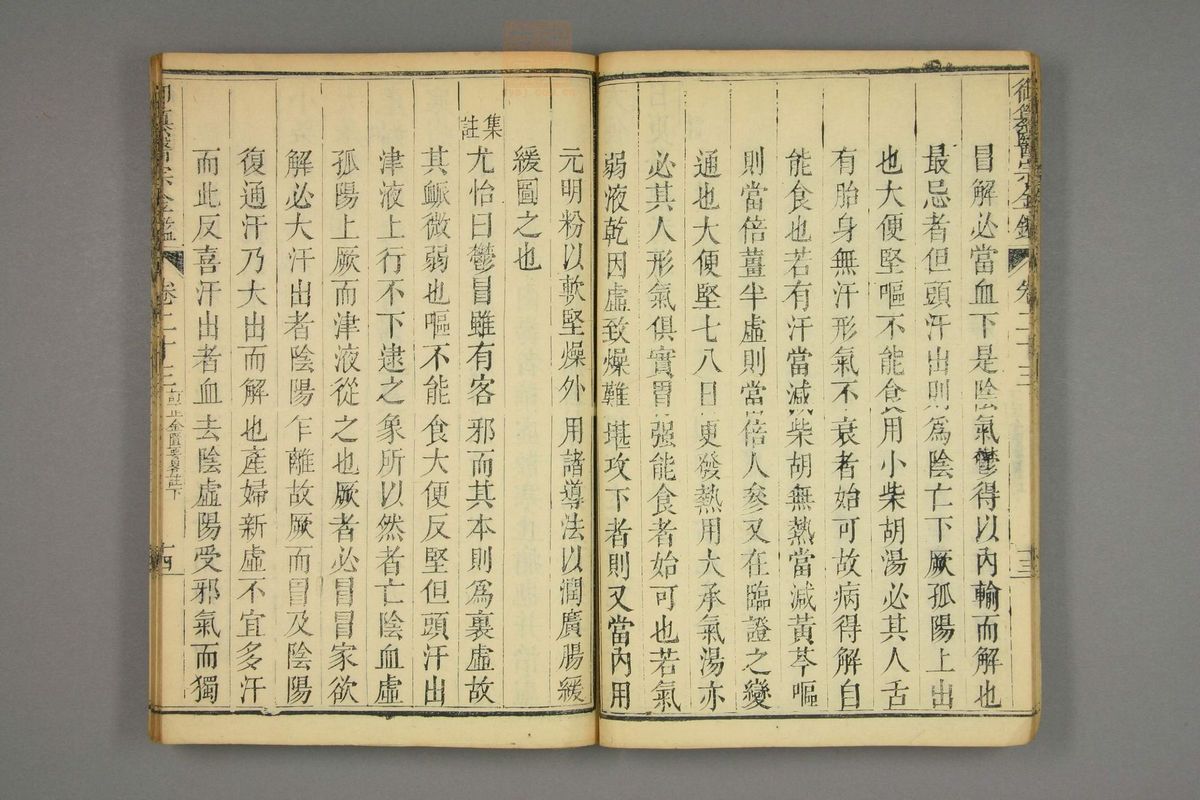 冒解必當血下是陰氣鬱得以內輸而解也
最忌者但頭汗出則為陰亡下厥孤陽上出
也大便堅嘔不能食用小柴胡湯必其人舌
有胎身無汗形氣不衰者始可故病得解自
能食也若有汗當減柴胡無熱當減黃芩嘔
則當倍薑半虛則當倍人參又在臨證之變
通也大便堅七八日更發熱用大承氣湯亦
必其人形氣俱實胃强能食者始可也若氣
弱液乾因虛致燥難堪攻下者則又當內用
元明粉以軟堅燥外用諸導法以潤廣腸緩
緩圖之也
集註
尤怡曰鬱冒雖有客邪而其本則爲裏虛故
其脈微弱也嘔不能食大便反堅但頭汗出
津液上行不下逮之象所以然者亡陰血虛
孤陽上厥而津液從之也厥者必冒冒家欲
解必大汗出者陰陽乍離故厥而冒及陰陽
復通汗乃大出而解也產婦新虛不宜多汗
而此反喜汗出者血去陰虛陽受邪氣而獨
卷二十三
訂正金匱要畧註下
十四